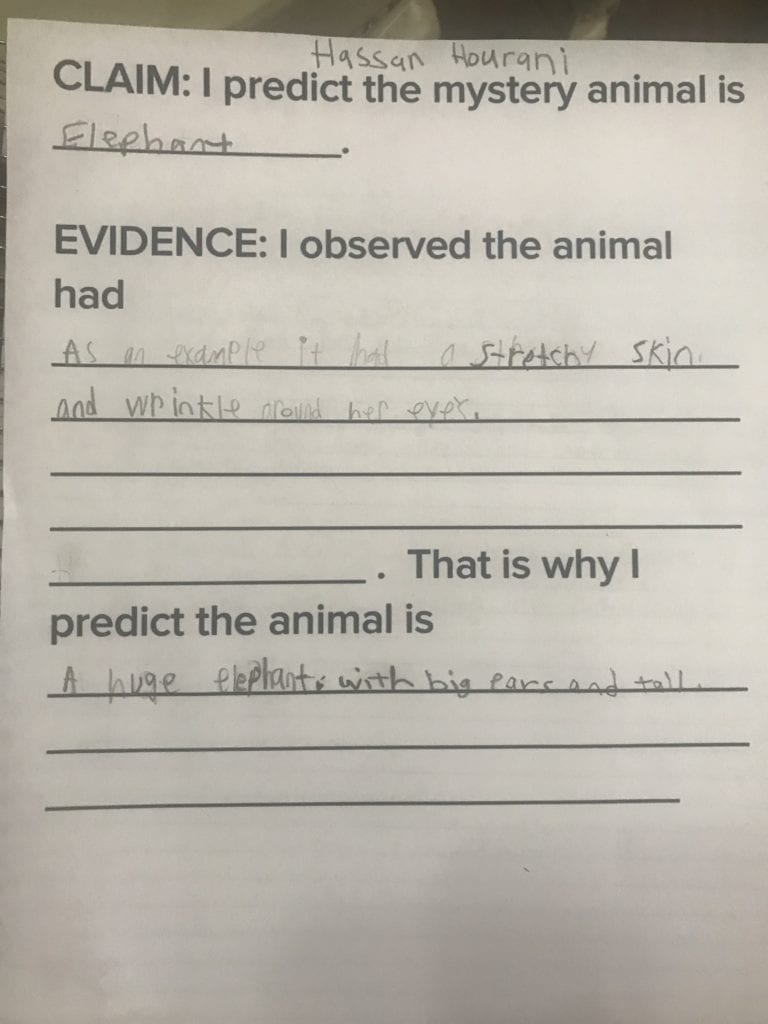 Hassan Hourani
CLAIM: I predict the mystery animal is
Elephant.
EVIDENCE: I observed the animal
had
As an example it had a stretchy skin.
and wrinkle around her eyes.
. That is why I
predict the animal is
A huge elephant. with big ears and tall.